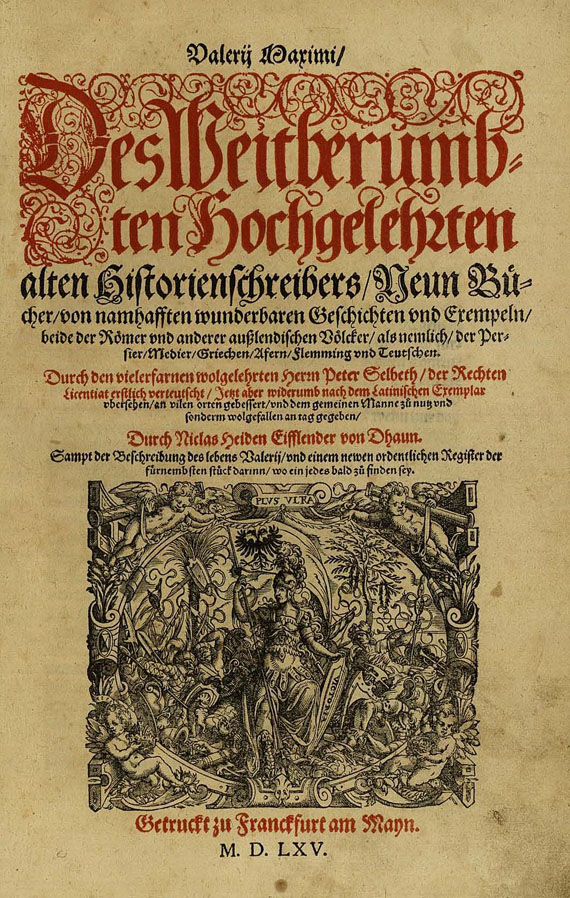 Valerij Maximi/
Des Weitberumb-
ten Hochgelehrten
alten Historienschreibers/Neun Bü-
cher/von namhafften wunderbaren Geschichten vnd Exempeln/
beide der Römer vnd anderer außlendischen Völcker/als nemlich/der Per-
sier/Medier/Griechen/Afern/Flemming vnd Teutschen.
Durch den vielerfarnen wolgelehrten Herrn Peter Selbeth/der Rechten
Licentiat erstlich verteutscht/Jetzt aber widerumb nach dem Latinischen Exemplar
vbersehen/an vilen orten gebessert/vnd dem gemeinen Manne zů nutz vnd
sonderm wolgefallen an tag gegeben/
Durch Niclas Heiden Eifflender von Dhaun.
Sampt der Beschreibung des lebens Valerij/vnd einem newen ordentlichen Register der
fürnembsten stück darinn/wo ein jedes bald zů finden sey.
PLVS VLRA
Getruckt zu Franckfurt am Mayn.
M. D. LXV.